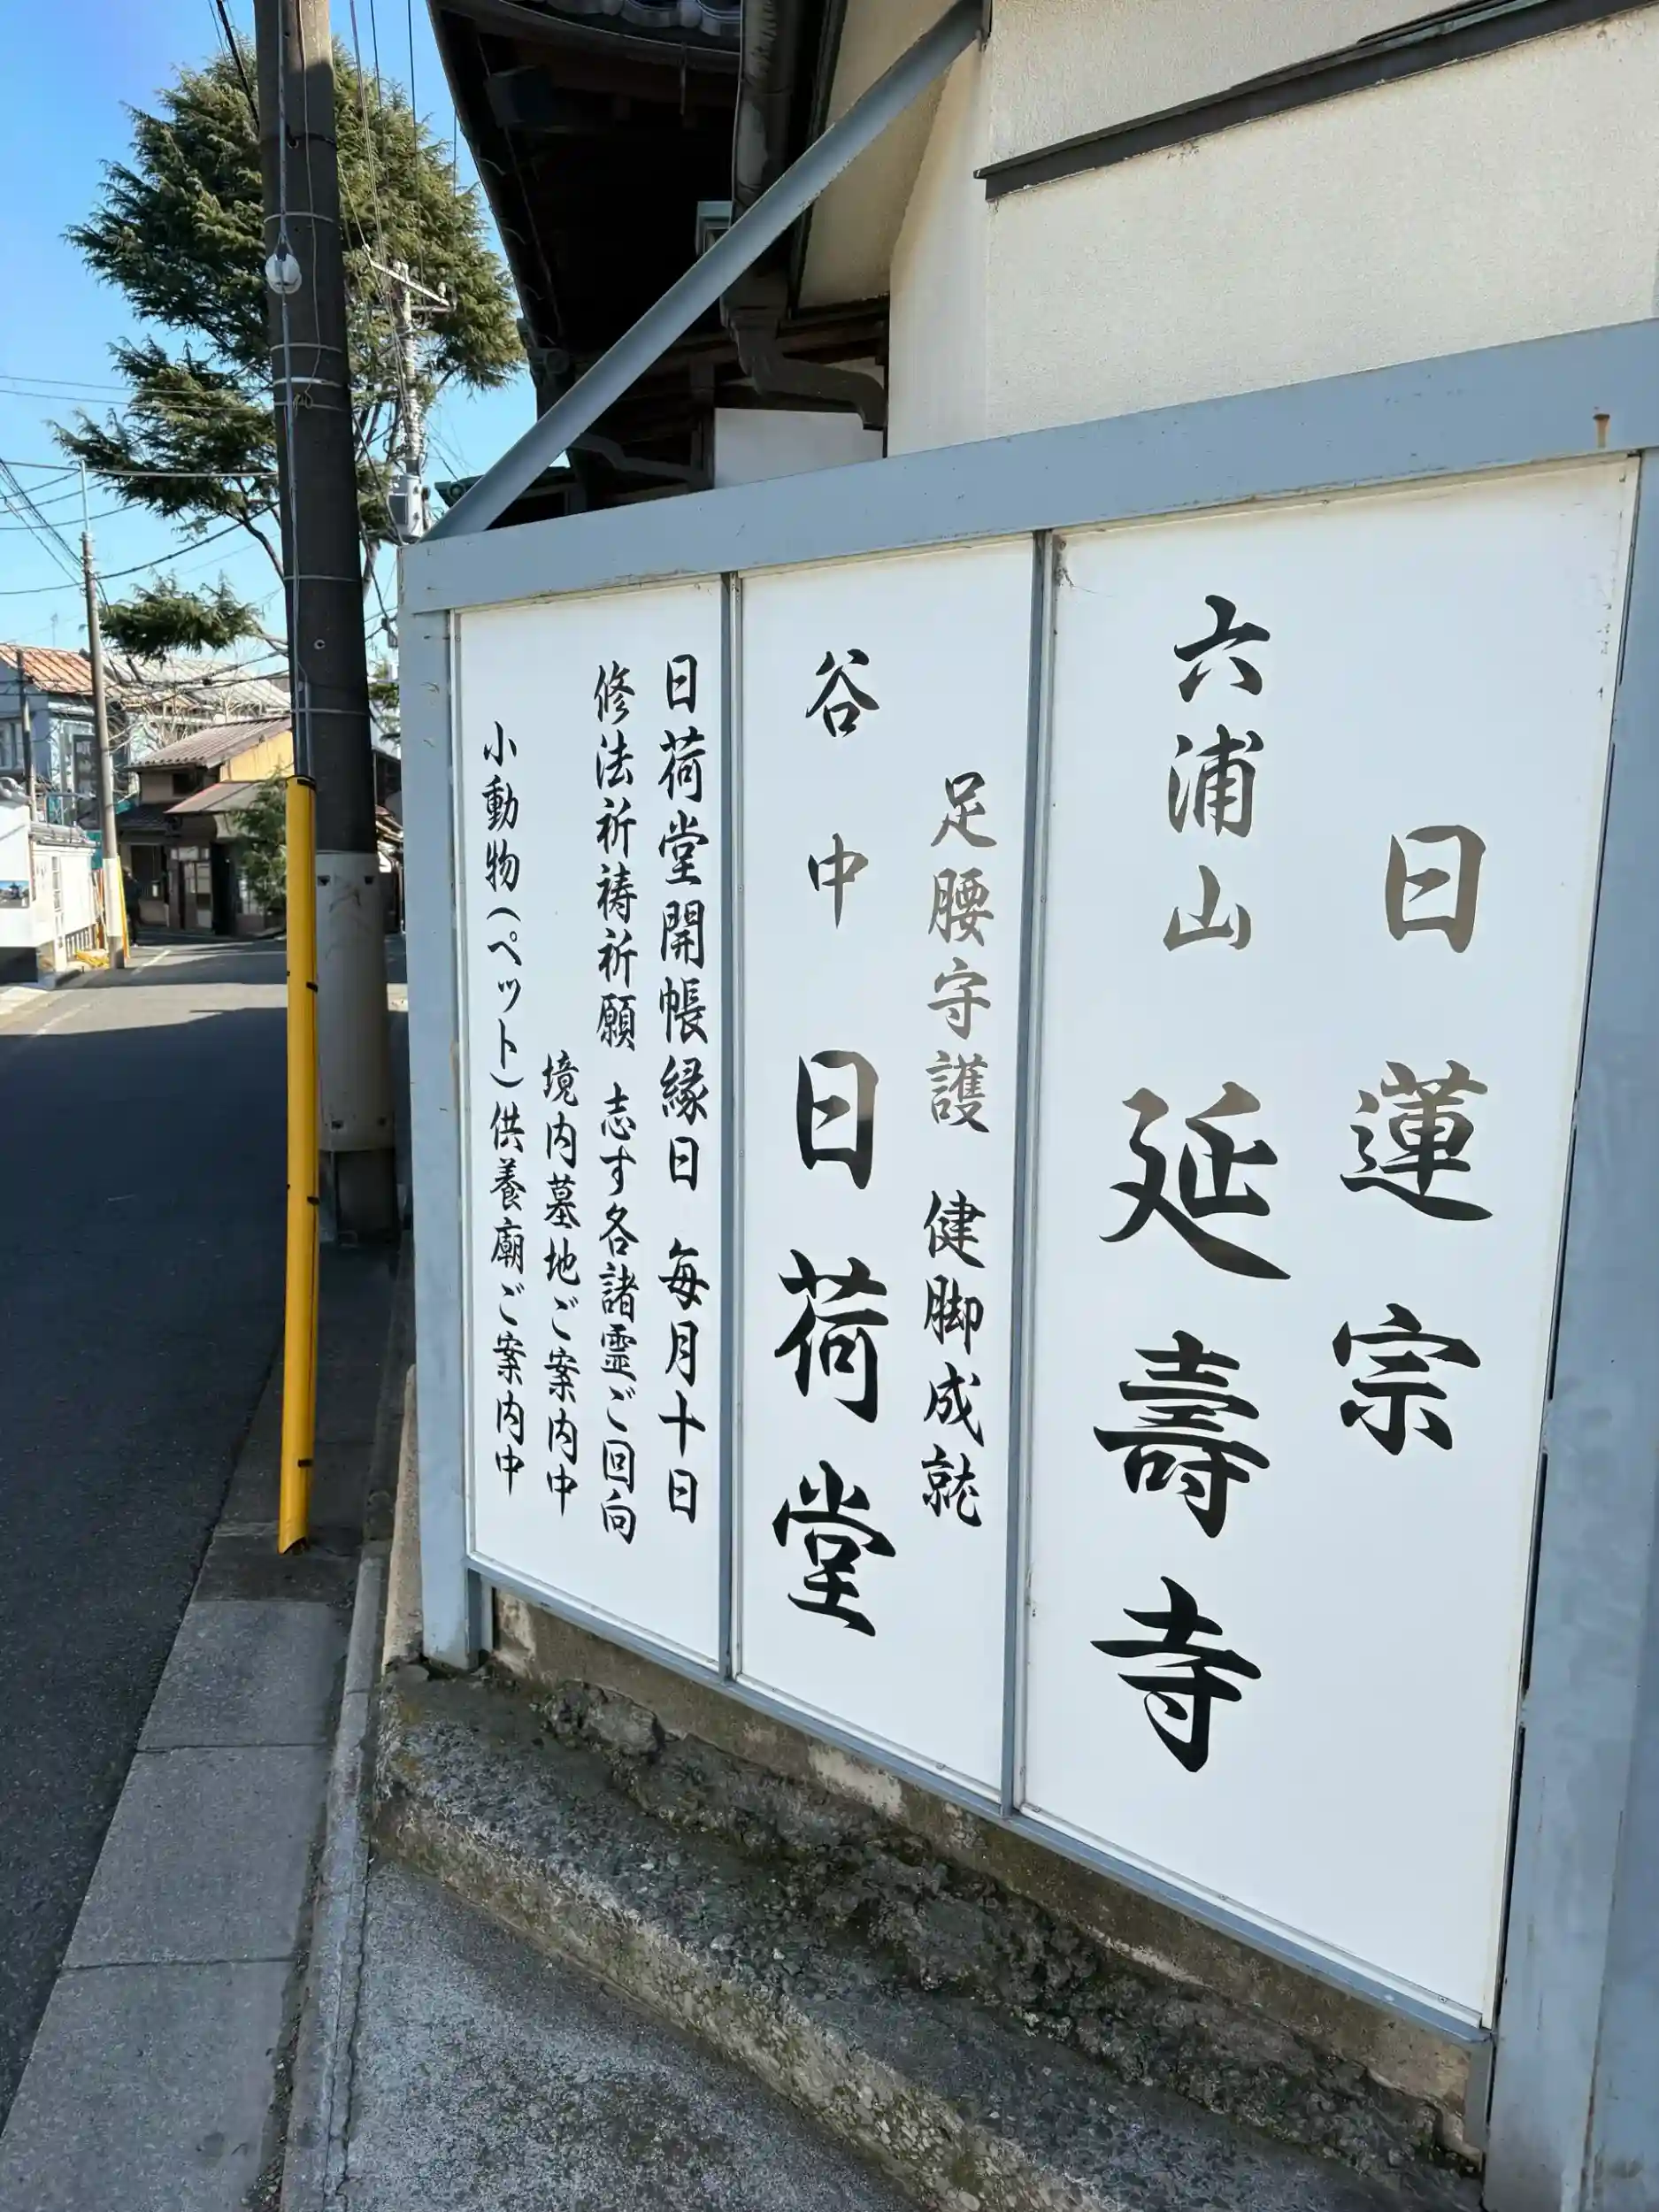 日蓮宗
六浦山 延壽寺
足腰守護 健脚成就
谷中 日荷堂
日荷堂開帳縁日 毎月十日
修法祈祷祈願 志す各諸霊ご回向
境内墓地ご案内中
小動物(ペット)供養廟ご案内中